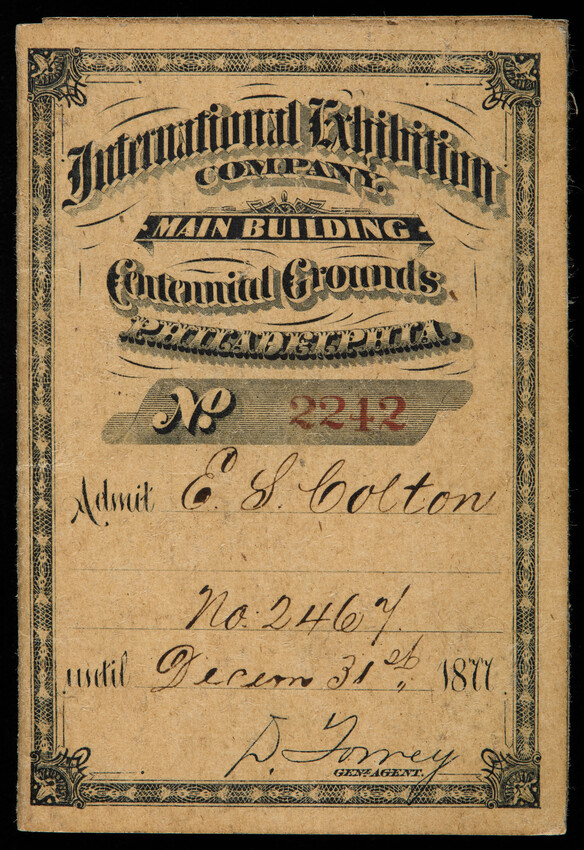 International Exhibition
COMPANY.
MAIN BUILDING
Centennial Grounds.
PHILADELPHIA.
No. 2212
Admit E. S. Colton
No. 2467.
until Decem 31st, 1877
D. Torrey
GENL. AGENT.